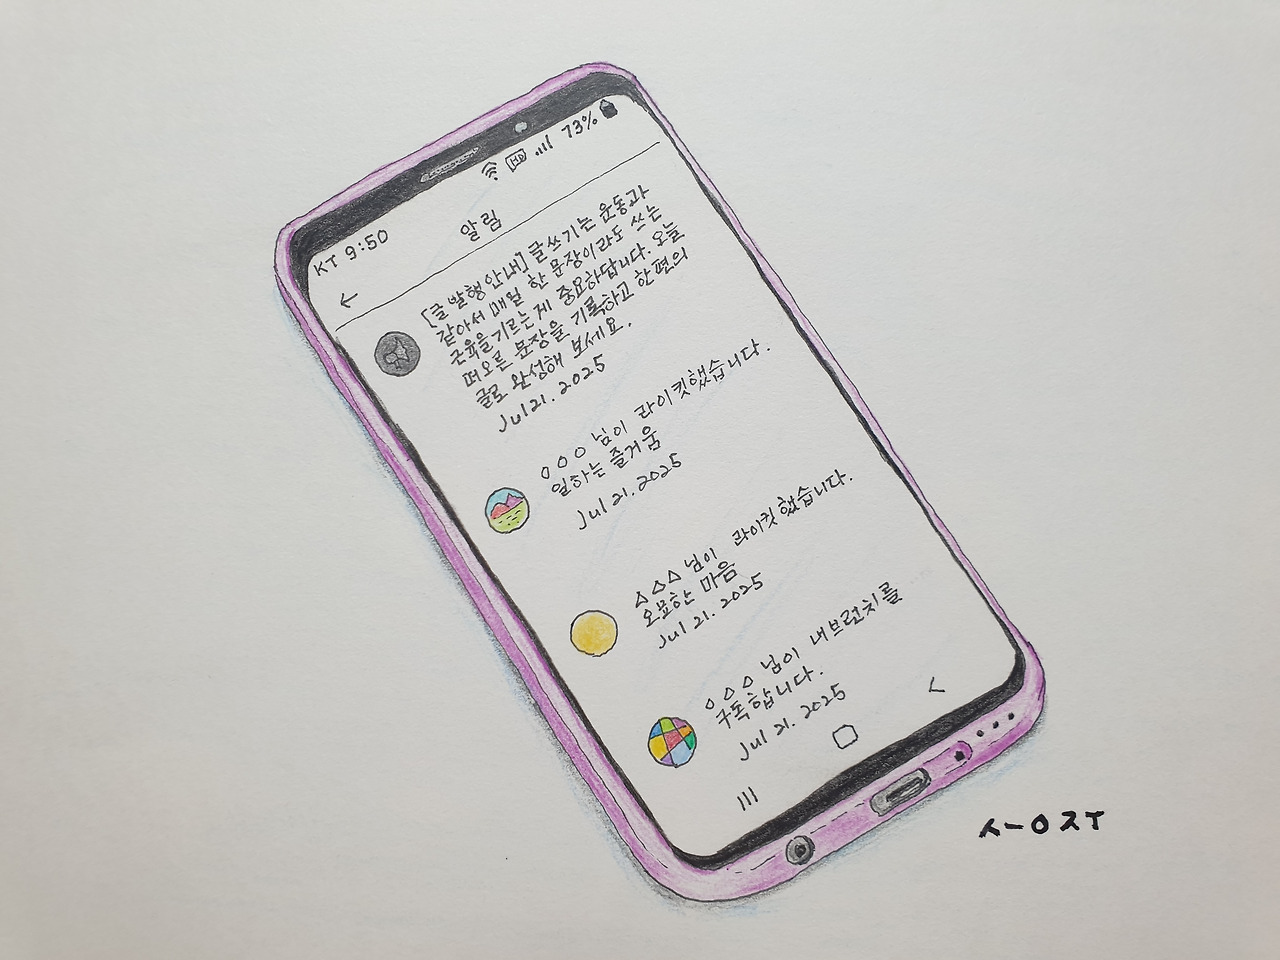 KT 9:50 HD 73%
알림
[글 발행 안내] 글쓰기는 운동과
같아서 매일 한 문장이라도 쓰는
근육을 기르는게 중요하답니다. 오늘
떠오른 문장을 기록하고 한 편의
글로 완성해 보세요.
Jul 21. 2025
ㅇㅇㅇ님이 라이킷했습니다.
일하는 즐거움
Jul 21. 2025
△△△님이 라이킷했습니다.
오묘한 마음
Jul 21. 2025
ㅇ△△님이 내브런치를
구독합니다.
Jul 21. 2025
ㅅㅡㅇㅈㅜ